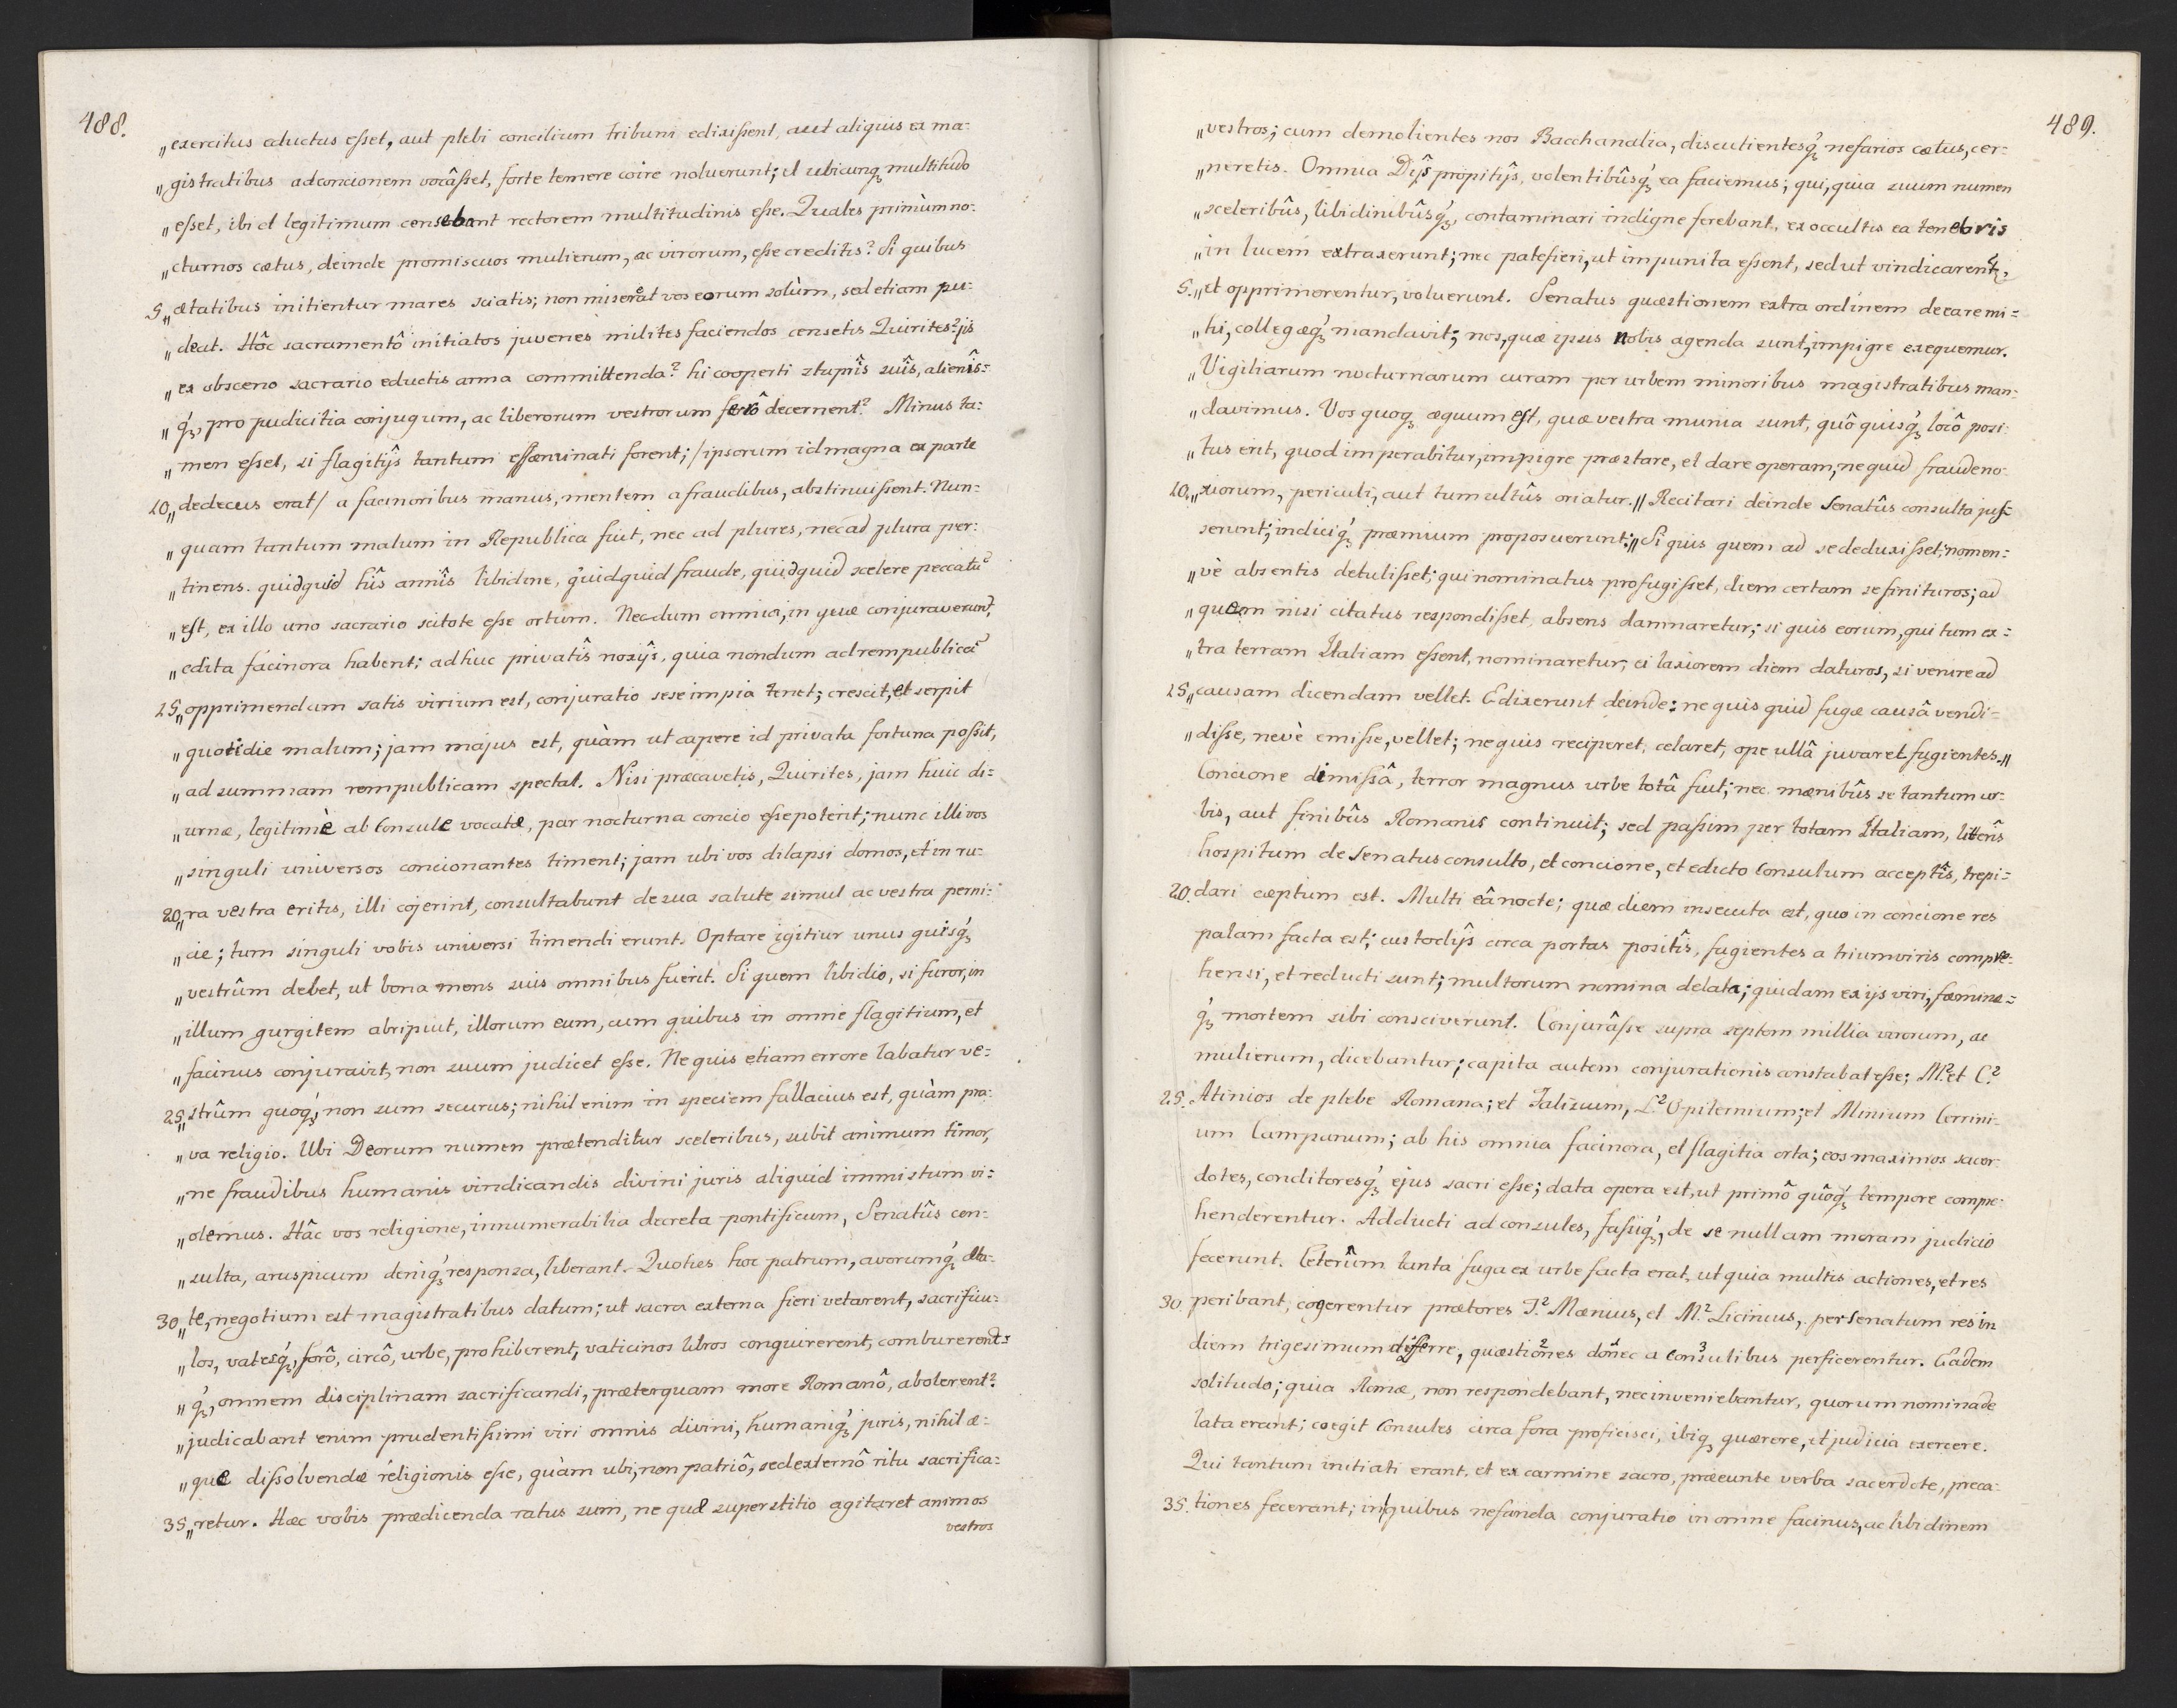 488.
„exercitus eductus eſset, aut plebi concilium tribuni edixiſsent, aut aliquis ex ma=
„gistratibus ad concionem vocâſset, forte temere coire noluerunt; et ubicunqꝫ multitudo
„eſset, ibi et legitimum censebant rectorem multitudinis eſse. Quales primùm no=
„cturnos cætus, deinde promiscuos mulierum, ac virorum, eſse creditis? Si quibus
5 „ætatibus initientur mares sciatis; non misereat vos eorum solùm, sed etiam pu=
„deat. Hôc sacramentô initiatos juvenes milites faciendos censetis Quirites? ijs
„ex obsceno sacrario eductis arma committenda? hi cooperti stuprîs suîs, alienîs=
„qꝫ́, pro pudicitia conjugum, ac liberorum vestrorum ferrô decernent? Minus ta=
„men eſset, si flagitijs tantum effæminati forent; /ipsorum id magna ex parte
10 „dedecus erat/ a facinoribus manus, mentem a fraudibus, abstinuiſsent. Nun=
„quam tantum malum in Republica fuit, nec ad plures, nec ad plura per=
„tinens. quidquid hîs annîs libidine, quidquid fraude, quidquid scelere peccatũ
„est, ex illo uno sacrario scitote eſse ortum. Necdum omnia, in quæ conjuraverunt,
„edita facinora habent; adhuc privatîs noxijs, quia nondum ad rempublicã
15 „opprimendam satis virium est, conjuratio sese impia tenet; crescit, et serpit
„quotidie malum; jam majus est, quàm ut capere id privata fortuna poſsit,
„ad summam rempublicam spectat. Nisi præcavetis, Quirites, jam huic di=
„urnæ, legitimè ab Consule vocatæ, par nocturna concio eſse poterit; nunc illi vos
„singuli universos concionantes timent; jam ubi vos dilapsi domos, et in ru=
20 „ra vestra eritis, illi cojerint, consultabunt de sua salute simul ac vestra perni=
„cie; tum singuli vobis universi timendi erunt. Optare igitur unus quisqꝫ́
„vestrûm debet, ut bona mens suis omnibus fuerit. Si quem libido, si furor, in
„illum gurgitem abripuit, illorum eum, cum quibus in omne flagitium, et
„facinus conjuravit, non suum judicet eſse. Ne quis etiam errore labatur ve=
25 „strûm quoqꝫ́, non sum securus; nihil enim in speciem fallacius est, quàm pra=
„va religio. Ubi Deorum numen prætenditur sceleribus, subit animum timor,
„ne fraudibus humanis vindicandis divini juris aliquid immistum vi=
„olemus. Hâc vos religione, innumerabilia decreta pontificum, Senatûs con=
„sulta, aruspicum deniqꝫ́ responsa, liberant. Quoties hoc patrum, avorumqꝫ́ æta=
30 „te, negotium est magistratibus datum; ut sacra externa fieri vetarent, sacrificu=
„los, vatesqꝫ́, forô, circô, urbe, prohiberent, vaticinos libros conquirerent, comburerent=
„qꝫ́, omnem disciplinam sacrificandi, præterquam more Romanô, abolerent?
„judicabant enim prudentiſsimi viri omnis divini, humaniqꝫ́ juris, nihil æ=
„que diſsolvendæ religionis eſse, quàm ubi, non patriô, sed externô ritu sacrifica=
35 „retur. Hæc vobis prædicenda ratus sum, ne quæ superstitio agitaret animos
vestros
489.
„vestros; cum demolientes nos Bacchanalia, discutientesqꝫ́ nefarios cætus, cer=
„neretis. Omnia Dijs propitijs, volentibûsqꝫ́ ea faciemus; qui, quia suum numen
„sceleribûs, libidinibûsqꝫ́, contaminari indigne ferebant, ex occultis ea tenebris
„in lucem extraxerunt; nec patefieri, ut impunita eſsent, sed ut vindicarentꝫ,
5. „et opprimerentur, voluerunt. Senatus quæstionem extra ordinem de ea re mi=
„hi, collegæqꝫ́ mandavit; nos, quæ ipsis nobis agenda sunt, impigre exequemur.
„Vigiliarum nocturnarum curam per urbem minoribus magistratibus man=
„davimus. Vos quoqꝫ æquum est, quæ vestra munia sunt, quô quisqꝫ́ locô posi=
„tus erit, quod imperabitur, impigre præstare, et dare operam, ne quid fraude no=
10. „xiorum, periculi, aut tumultûs oriatur.// Recitari deinde Senatûs consulta juſ=
serunt; indiciqꝫ́ præmium proposuerunt: //Si quis quem ad se deduxiſset, nomen=
„vè absentis detuliſset; qui nominatus profugiſset, diem certam se finituros; ad
„quam nisi citatus respondiſset, absens damnaretur; si quis eorum, qui tum ex=
„tra terram Italiam eſsent, nominaretur, ei laxiorem diem daturos, si venire ad
15 „causam dicendam vellet. Edixerunt deinde: ne quis quid fugæ causâ vendi=
„diſse, nevè emiſse, vellet; ne quis reciperet, celaret, ope ullâ juvaret fugientes.//
Concione dimiſsâ, terror magnus urbe totâ fuit; nec mœnibûs se tantum ur=
bis, aut finibûs Romanis continuit; sed paſsim per totam Italiam, litterîs
hospitum de Senatus consulto, et concione, et edicto Consulum acceptîs, trepi=
20. dari cæptum est. Multi eâ nocte; quæ diem insecuta est, quo in concione res
palam facta est; custodijs circa portas positîs, fugientes a triumviris compre=
hensi, et reducti sunt; multorum nomina delata; quidam ex ijs viri, fœminæ=
qꝫ́ mortem sibi consciverunt. Conjurâſse supra septem millia virorum, ac
mulierum, dicebantur; capita autem conjurationis constabat eſse; M.² et C.²
25. Atinios de plebe Romana; et Faliscum, L.² Opiternium; et Minium Cerrini=
um Campanum; ab his omnia facinora, et flagitia orta; eos maximos sacer=
dotes, conditoresqꝫ́ ejus sacri eſse; data opera est, ut primô quôqꝫ́ tempore compre=
henderentur. Adducti ad consules, faſsiqꝫ́, de se nullam moram judicio
fecerunt. Ceterûm tanta fuga ex urbe facta erat, ut quia multis actiones, et res
30. peribant, cogerentur prætores T.² Mænius, et M.² Licinius, per Senatum res in
diem trigesimum differre, quæstio²nes do¹nec a Con³sulibus perficerentur. Eadem
solitudo; quia Romæ, non respondebant, nec inveniebantur, quorum nomina de
lata erant; coegit Consules circa fora proficisci, ibiqꝫ quærere, et judicia exercere.
Qui tantum initiati erant, et ex carmine sacro, præeunte verba sacerdote, preca=
35. tiones fecerant; in quibus nefanda conjuratio in omne facinus, ac libidinem